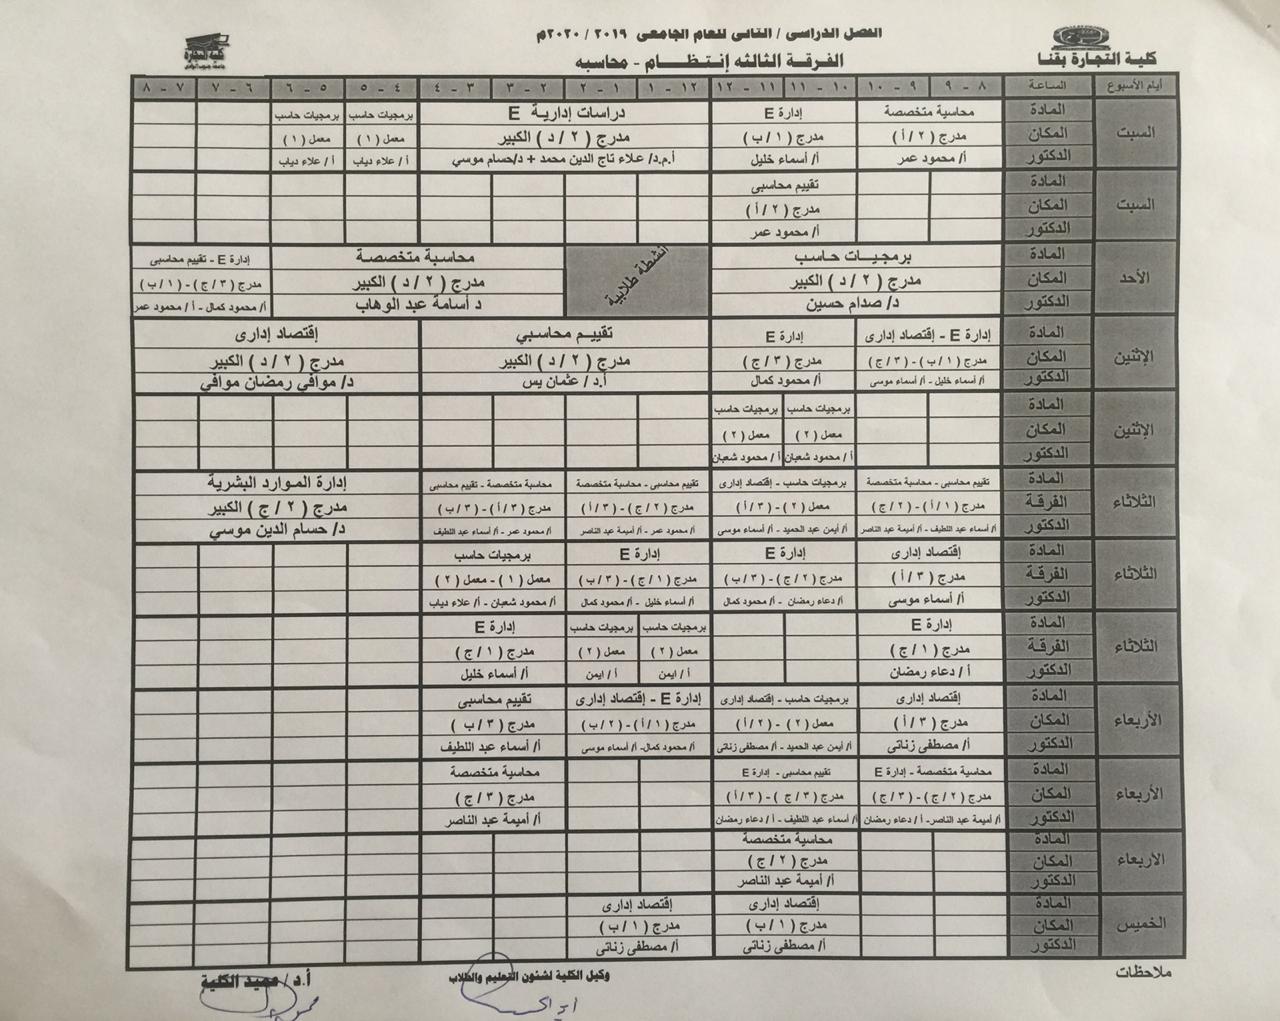 الفصل الدراسى / الثانى للعام الجامعى ٢٠١٩ / ٢٠٢٠م
كلية التجارة بقنا
كلية التجارة
الفرقة الثالثه إنتظــــام - محاسبه
أيام الأسبوع الساعة ٨ - ٩ ٩ - ١٠ ١٠ - ١١ ١١ - ١٢ ١٢ - ١ ١ - ٢ ٢ - ٣ ٣ - ٤ ٤ - ٥ ٥ - ٦ ٦ - ٧ ٧ - ٨
السبت
المادة محاسبة متخصصة إدارة E دراسات إدارية E برمجيات حاسب برمجيات حاسب
المكان مدرج ( ٢ / أ ) مدرج ( ١ / ب ) مدرج ( ٢ / د ) الكبير معمل ( ١ ) معمل ( ١ )
الدكتور أ/ محمود عمر أ/ أسماء خليل أ.م.د/ علاء تاج الدين محمد + د/حسام موسي أ/ علاء دياب أ/ علاء دياب
السبت
المادة تقييم محاسبى
المكان مدرج ( ٢ / أ )
الدكتور أ/ محمود عمر
الأحد
المادة برمجيـــات حاسب أنشطة طلابية محاسبة متخصصة إدارة E - تقييم محاسبى
المكان مدرج ( ٢ / د ) الكبير مدرج ( ٢ / د ) الكبير مدرج ( ٣ / ج ) - ( ١ / ب )
الدكتور د/ صدام حسين د أسامة عبد الوهاب أ/ محمود كمال - أ / محمود عمر
الإثنين
المادة إدارة E - إقتصاد إدارى إدارة E تقييـم محاسـبي إقتصاد إدارى
المكان مدرج ( ١ / ب ) - ( ٣ / ج ) مدرج ( ٣ / ج ) مدرج ( ٢ / د ) الكبير مدرج ( ٢ / د ) الكبير
الدكتور أ/ أسماء خليل - أ/ أسماء موسى أ/ محمود كمال أ.د / عثمان يس د/ موافي رمضان موافي
الإثنين
المادة برمجيات حاسب برمجيات حاسب
المكان معمل ( ٢ ) معمل ( ٢ )
الدكتور أ / محمود شعبان أ / محمود شعبان
الثلاثاء
المادة تقييم محاسبى - محاسبة متخصصة برمجيات حاسب - إقتصاد إدارى تقييم محاسبى - محاسبة متخصصة محاسبة متخصصة - تقييم محاسبى إدارة الموارد البشرية
الفرقة مدرج ( ١ / أ ) - ( ٢ / ج ) معمل ( ٢ ) - ( ٣ / أ ) مدرج ( ٢ / ج ) - ( ٣ / أ ) مدرج ( ٣ / أ ) - ( ٣ / ب ) مدرج ( ٢ / ج ) الكبير
الدكتور أ/ أسماء عبد اللطيف - أ/ أميمة عبد الناصر أ/ أيمن عبد الحميد - أ/ أسماء موسى أ/ محمود عمر - أ/ أميمة عبد الناصر أ/ محمود عمر - أ/ أسماء عبد اللطيف د/ حسام الدين موسي
الثلاثاء
المادة إقتصاد إدارى إدارة E إدارة E برمجيات حاسب
الفرقة مدرج ( ٣ / أ ) مدرج ( ٢ / ج ) - ( ٣ / ب ) مدرج ( ١ / ج ) - ( ٣ / ب ) معمل ( ١ ) - معمل ( ٢ )
الدكتور أ/ أسماء موسى أ/ دعاء رمضان - أ/ محمود كمال أ/ أسماء خليل - أ/ محمود كمال أ/ محمود شعبان - أ/ علاء دياب
الثلاثاء
المادة إدارة E برمجيات حاسب برمجيات حاسب إدارة E
الفرقة مدرج ( ١ / ج ) معمل ( ٢ ) معمل ( ٢ ) مدرج ( ١ / ج )
الدكتور أ / دعاء رمضان أ / ايمن أ / ايمن أ/ أسماء خليل
الأربعاء
المادة إقتصاد إدارى برمجيات حاسب - إقتصاد إدارى إدارة E - إقتصاد إدارى تقييم محاسبى
المكان مدرج ( ٣ / أ ) معمل ( ٢ ) - ( ٢ / أ ) مدرج ( ١ / أ ) - ( ٢ / ب ) مدرج ( ٣ / ب )
الدكتور أ/ مصطفى زناتى أ/ أيمن عبد الحميد - أ/ مصطفى زناتى أ/ محمود كمال- أ/ أسماء موسى أ/ أسماء عبد اللطيف
الأربعاء
المادة محاسبة متخصصة - إدارة E تقييم محاسبى - إدارة E محاسبة متخصصة
المكان مدرج ( ٢ / ج ) - ( ٣ / ج ) مدرج ( ٣ / ج ) - ( ٣ / أ ) مدرج ( ٣ / ج )
الدكتور أ/ أميمة عبد الناصر- أ / دعاء رمضان أ/ أسماء عبد اللطيف - أ / دعاء رمضان أ/ أميمة عبد الناصر
الاربعاء
المادة محاسبة متخصصة
المكان مدرج ( ٢ / ج )
الدكتور أ/ أميمة عبد الناصر
الخميس
المادة إقتصاد إدارى إقتصاد إدارى
المكان مدرج ( ١ / ب ) مدرج ( ١ / ب )
الدكتور أ/ مصطفى زناتى أ/ مصطفى زناتى
ملاحظات
وكيل الكلية لشئون التعليم والطلاب
أ.د/ عميد الكلية